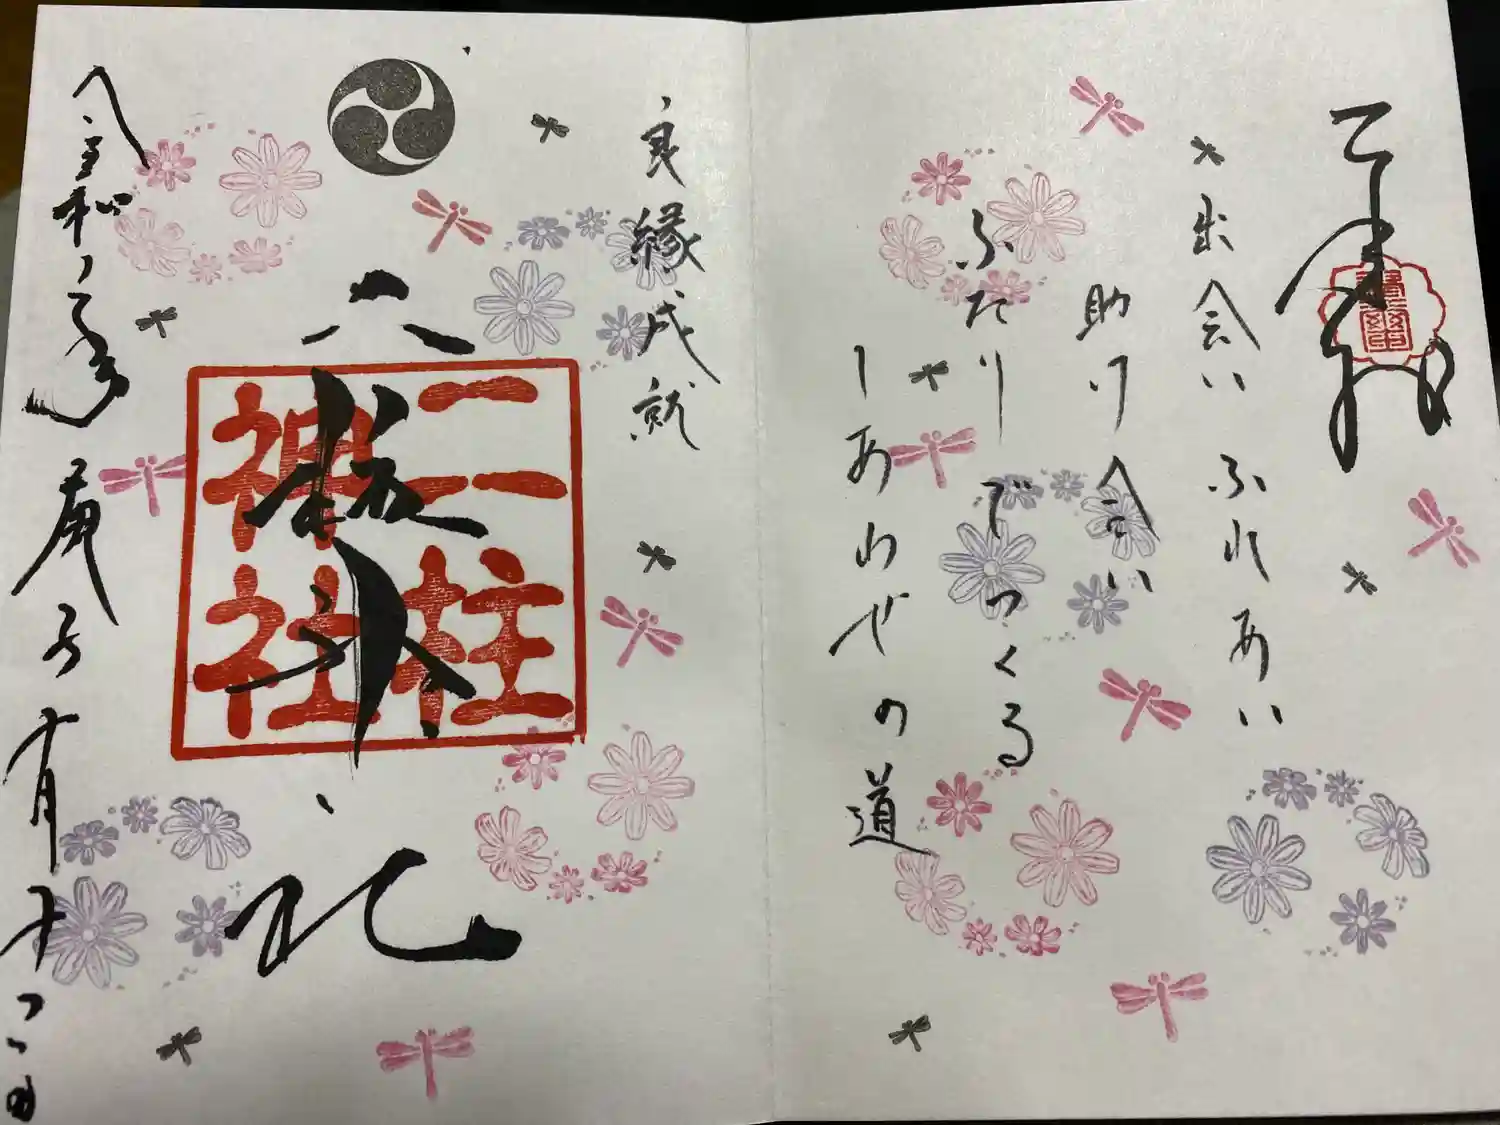 奉拝
出会い ふれあい
助け合い
ふたりでつくる
しあわせの道
良縁成就
二柱
神社
令和二年 庚子 十月十二日